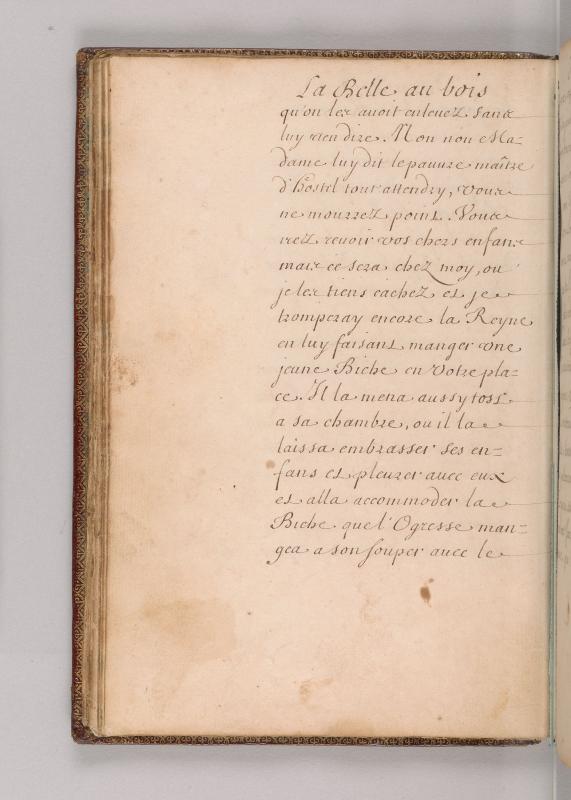 La Belle au bois
qu'on les auoit enleuez sans
luy rien dire. Non non Ma-
dame luy dit le pauure maître
d'hostel tout attendry, vous
ne mourrez point. Vous
irez reuoir vos chers enfans
mais ce sera chez moy, ou
je les tiens cachez et je
tromperay encore la Reyne
en luy faisant manger vne
jeune Biche en votre pla-
ce. Il la mena aussy tost
a sa chambre, ou il la
laissa embrasser ses en=
fans et pleurer auec eux
et alla accommoder la
Biche que l'Ogresse man=
gea a son souper auec le